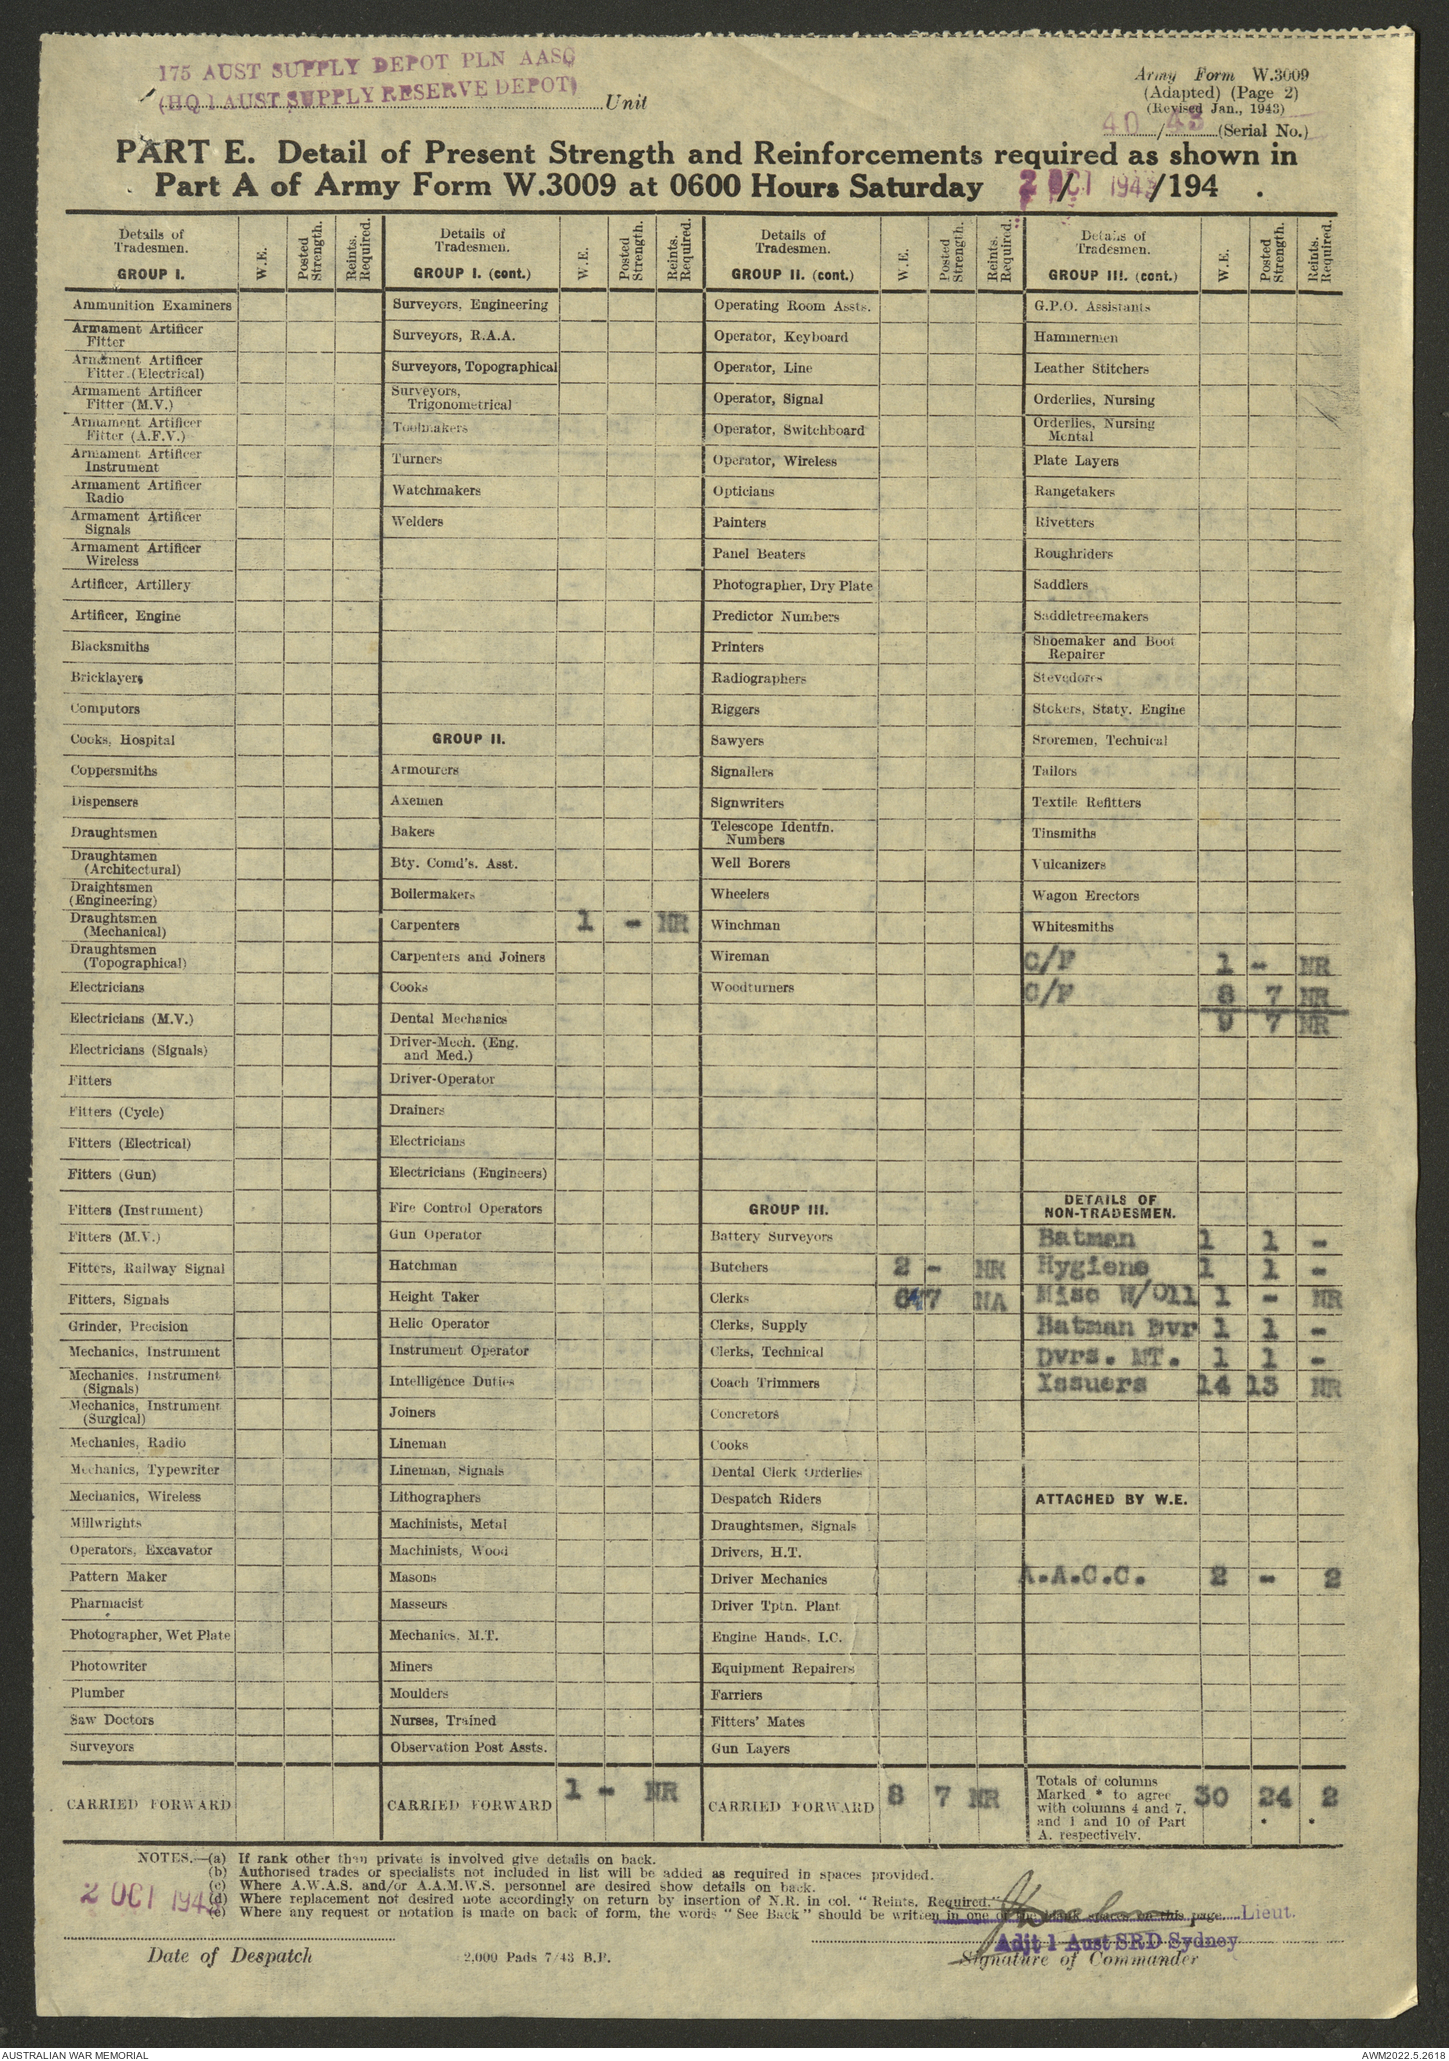 175 AUST SUPPLY DEPOT PLN AASC
(HQ 1 AUST SUPPLY RESERVE DEPOT) Unit
Army Form W.3009
(Adapted) (Page 2)
(Revised Jan., 1943)
40/43 (Serial No.)
PART E. Detail of Present Strength and Reinforcements required as shown in
Part A of Army Form W.3009 at 0600 Hours Saturday 2 OCT 1943/194 .
Details of
Tradesmen.
GROUP I.
W.E.
Posted
Strength.
Reints.
Required.
Ammunition Examiners
Armament Artificer
Fitter
Armament Artificer
Fitter (Electrical)
Armament Artificer
Fitter (M.V.)
Armament Artificer
Fitter (A.F.V.)
Armament Artificer
Instrument
Armament Artificer
Radio
Armament Artificer
Signals
Armament Artificer
Wireless
Artificer, Artillery
Artificer, Engine
Blacksmiths
Bricklayers
Computors
Cooks, Hospital
Coppersmiths
Dispensers
Draughtsmen
Draughtsmen
(Architectural)
Draightsmen
(Engineering)
Draughtsmen
(Mechanical)
Draughtsmen
(Topographical)
Electricians
Electricians (M.V.)
Electricians (Signals)
Fitters
Fitters (Cycle)
Fitters (Electrical)
Fitters (Gun)
Fitters (Instrument)
Fitters (M.V.)
Fitters, Railway Signal
Fitters, Signals
Grinder, Precision
Mechanics, Instrument
Mechanics, Instrument
(Signals)
Mechanics, Instrument
(Surgical)
Mechanics, Radio
Mechanics, Typewriter
Mechanics, Wireless
Millwrights
Operators, Excavator
Pattern Maker
Pharmacist
Photographer, Wet Plate
Photowriter
Plumber
Saw Doctors
Surveyors
CARRIED FORWARD
Details of
Tradesmen.
GROUP I. (cont.)
W.E.
Posted
Strength.
Reints.
Required.
Surveyors, Engineering
Surveyors, R.A.A.
Surveyors, Topographical
Surveyors,
Trigonometrical
Toolmakers
Turners
Watchmakers
Welders
GROUP II.
Armourers
Axemen
Bakers
Bty. Comd's. Asst.
Boilermakers
Carpenters 1 - NR
Carpenters and Joiners
Cooks
Dental Mechanics
Driver-Mech. (Eng.
and Med.)
Driver-Operator
Drainers
Electricians
Electricians (Engineers)
Fire Control Operators
Gun Operator
Hatchman
Height Taker
Helio Operator
Instrument Operator
Intelligence Duties
Joiners
Lineman
Lineman, Signals
Lithographers
Machinists, Metal
Machinists, Wood
Masons
Masseurs
Mechanics, M.T.
Miners
Moulders
Nurses, Trained
Observation Post Assts.
CARRIED FORWARD 1 - NR
Details of
Tradesmen.
GROUP II. (cont.)
W.E.
Posted
Strength.
Reints.
Required.
Operating Room Assts.
Operator, Keyboard
Operator, Line
Operator, Signal
Operator, Switchboard
Operator, Wireless
Opticians
Painters
Panel Beaters
Photographer, Dry Plate
Predictor Numbers
Printers
Radiographers
Riggers
Sawyers
Signallers
Signwriters
Telescope Identfn.
Numbers
Well Borers
Wheelers
Winchman
Wireman
Woodturners
GROUP III.
Battery Surveyors
Butchers 2 - NR
Clerks 6 7 NA
Clerks, Supply
Clerks, Technical
Coach Trimmers
Concretors
Cooks
Dental Clerk Orderlies
Despatch Riders
Draughtsmen, Signals
Drivers, H.T.
Driver Mechanics
Driver Tptn. Plant
Engine Hands, I.C.
Equipment Repairers
Farriers
Fitters' Mates
Gun Layers
CARRIED FORWARD 8 7 NR
Details of
Tradesmen.
GROUP III. (cont.)
W.E.
Posted
Strength.
Reints.
Required.
G.P.O. Assistants
Hammermen
Leather Stitchers
Orderlies, Nursing
Orderlies, Nursing
Mental
Plate Layers
Rangetakers
Rivetters
Roughriders
Saddlers
Saddletreemakers
Shoemaker and Boot
Repairer
Stevedores
Stokers, Staty. Engine
Sroremen, Technical
Tailors
Textile Refitters
Tinsmiths
Vulcanizers
Wagon Erectors
Whitesmiths
C/F 1 - NR
C/F 8 7 NR
9 7 NR
DETAILS OF
NON-TRADESMEN.
Batman 1 1 -
Hygiene 1 1 -
Misc W/Oll 1 - NR
Batman Dvr 1 1 -
Dvrs. MT. 1 1 -
Issuers 14 13 NR
ATTACHED BY W.E.
A.A.C.C. 2 - 2
Totals of columns
Marked * to agree
with columns 4 and 7,
and 1 and 10 of Part
A. respectively.
30 24 2
NOTES.—(a) If rank other than private is involved give details on back.
(b) Authorised trades or specialists not included in list will be added as required in spaces provided.
(c) Where A.W.A.S. and/or A.A.M.W.S. personnel are desired show details on back.
(d) Where replacement not desired note accordingly on return by insertion of N.R. in col. "Reints. Required."
(e) Where any request or notation is made on back of form, the words "See Back" should be written in one of the blank spaces on this page.
2 OCT 1943
Lieut.
Adjt 1 Aust SRD Sydney
Date of Despatch
2,000 Pads 7/43 B.P.
Signature of Commander
AUSTRALIAN WAR MEMORIAL
AWM2022.5.2618